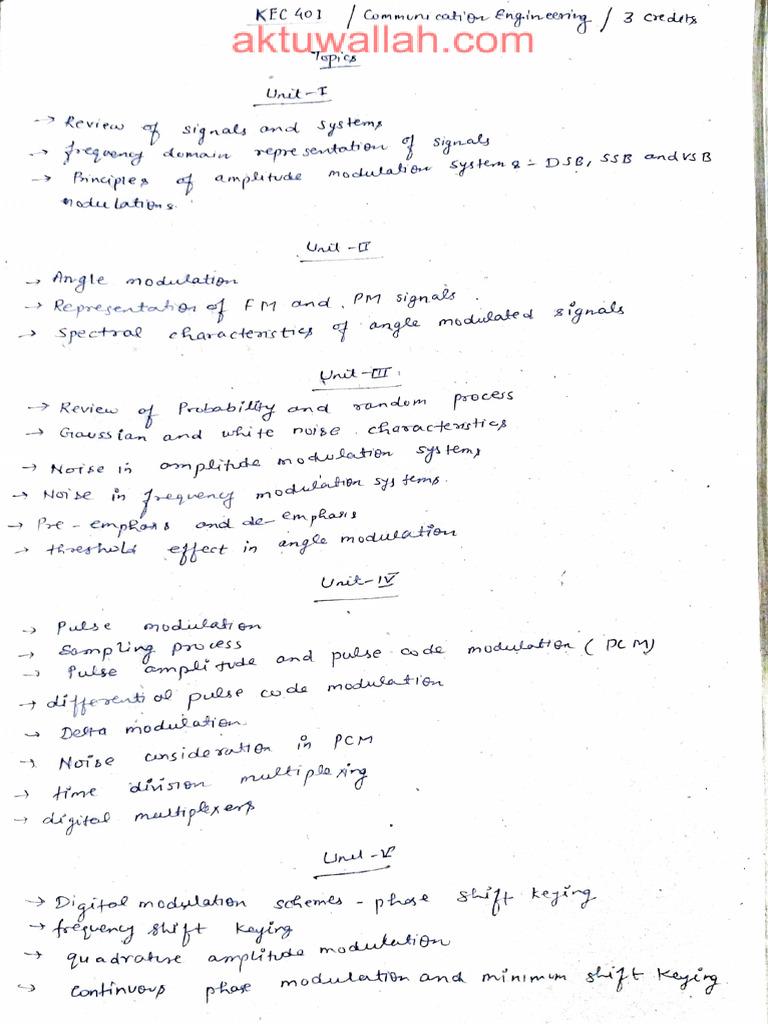 KEC 401 / Communication Engineering / 3 credits
aktuwallah.com
Topics
Unit-I
→ Review of signals and systems
→ frequency domain representation of signals
→ Principles of amplitude modulation systems - DSB, SSB and VSB
modulations.
Unit-II
→ Angle modulation
→ Representation of FM and PM signals.
→ Spectral characteristics of angle modulated signals
Unit-III
→ Review of Probability and random process
→ Gaussian and white noise characteristics
→ Noise in amplitude modulation systems
→ Noise in frequency modulation systems.
→ Pre-emphasis and de-emphasis
→ threshold effect in angle modulation
Unit-IV
→ Pulse modulation
→ Sampling process
→ Pulse amplitude and pulse code modulation (PCM)
→ differential pulse code modulation
→ Delta modulation
→ Noise consideration in PCM
→ time division multiplexing
→ digital multiplexers
Unit-V
→ Digital modulation schemes - phase shift keying
→ frequency shift keying
→ quadrature amplitude modulation
→ continuous phase modulation and minimum shift keying